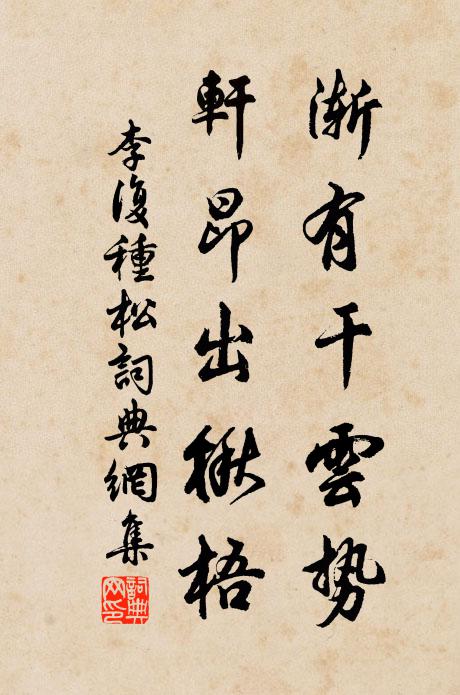 漸有干雲勢
軒昂出楸梧
李復種松詞典網集
詞典網印